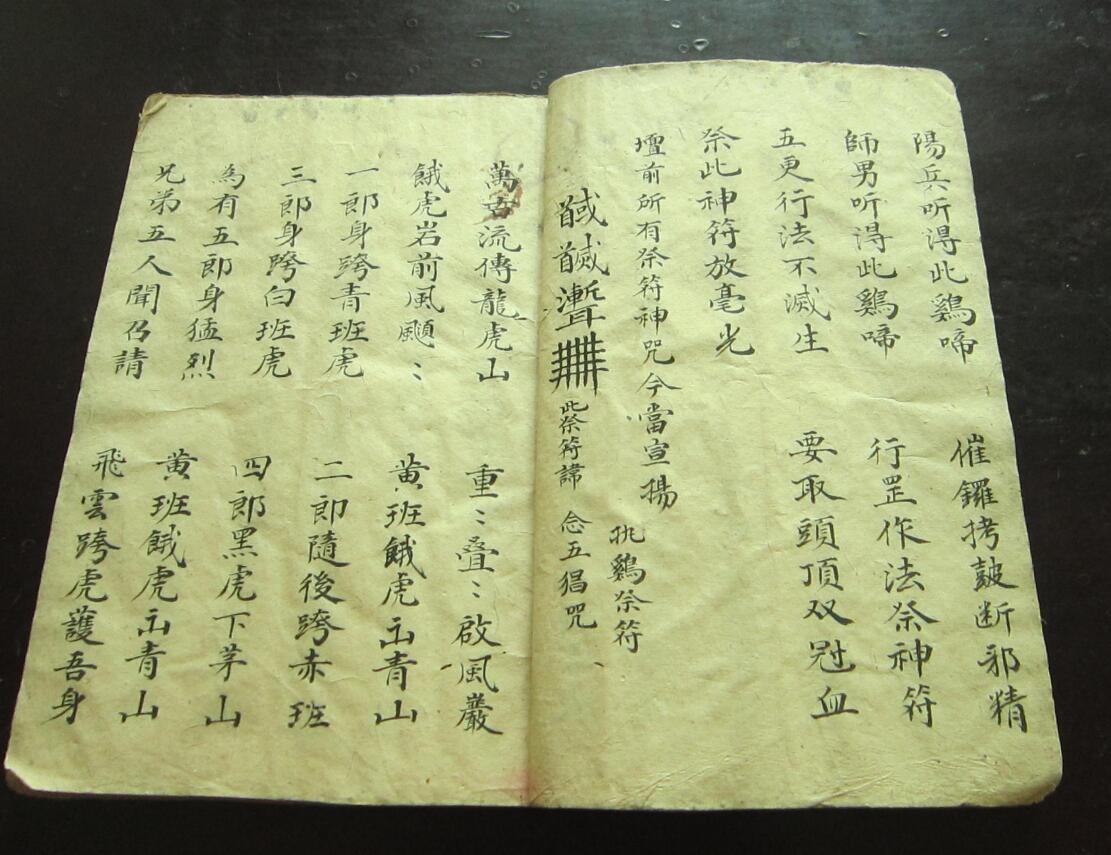 陽兵听得此鷄啼 催鑼拷皷断邪精
師男听得此鷄啼 行罡作法祭神符
五更行法不滅生 要取頭頂双冠血
祭此神符放毫光
壇前所有祭符神咒今當宣揚 執鷄祭符
此祭符諱 念五猖咒
萬古流傳龍虎山 重〻叠〻啟風巖
餓虎岩前風颺〻 黄班餓虎出青山
一郎身跨青班虎 二郎隨後跨赤班
三郎身跨白班虎 四郎黑虎下茅山
為有五郎身猛烈 黄班餓虎出青山
兄弟五人聞召請 飛雲跨虎護吾身